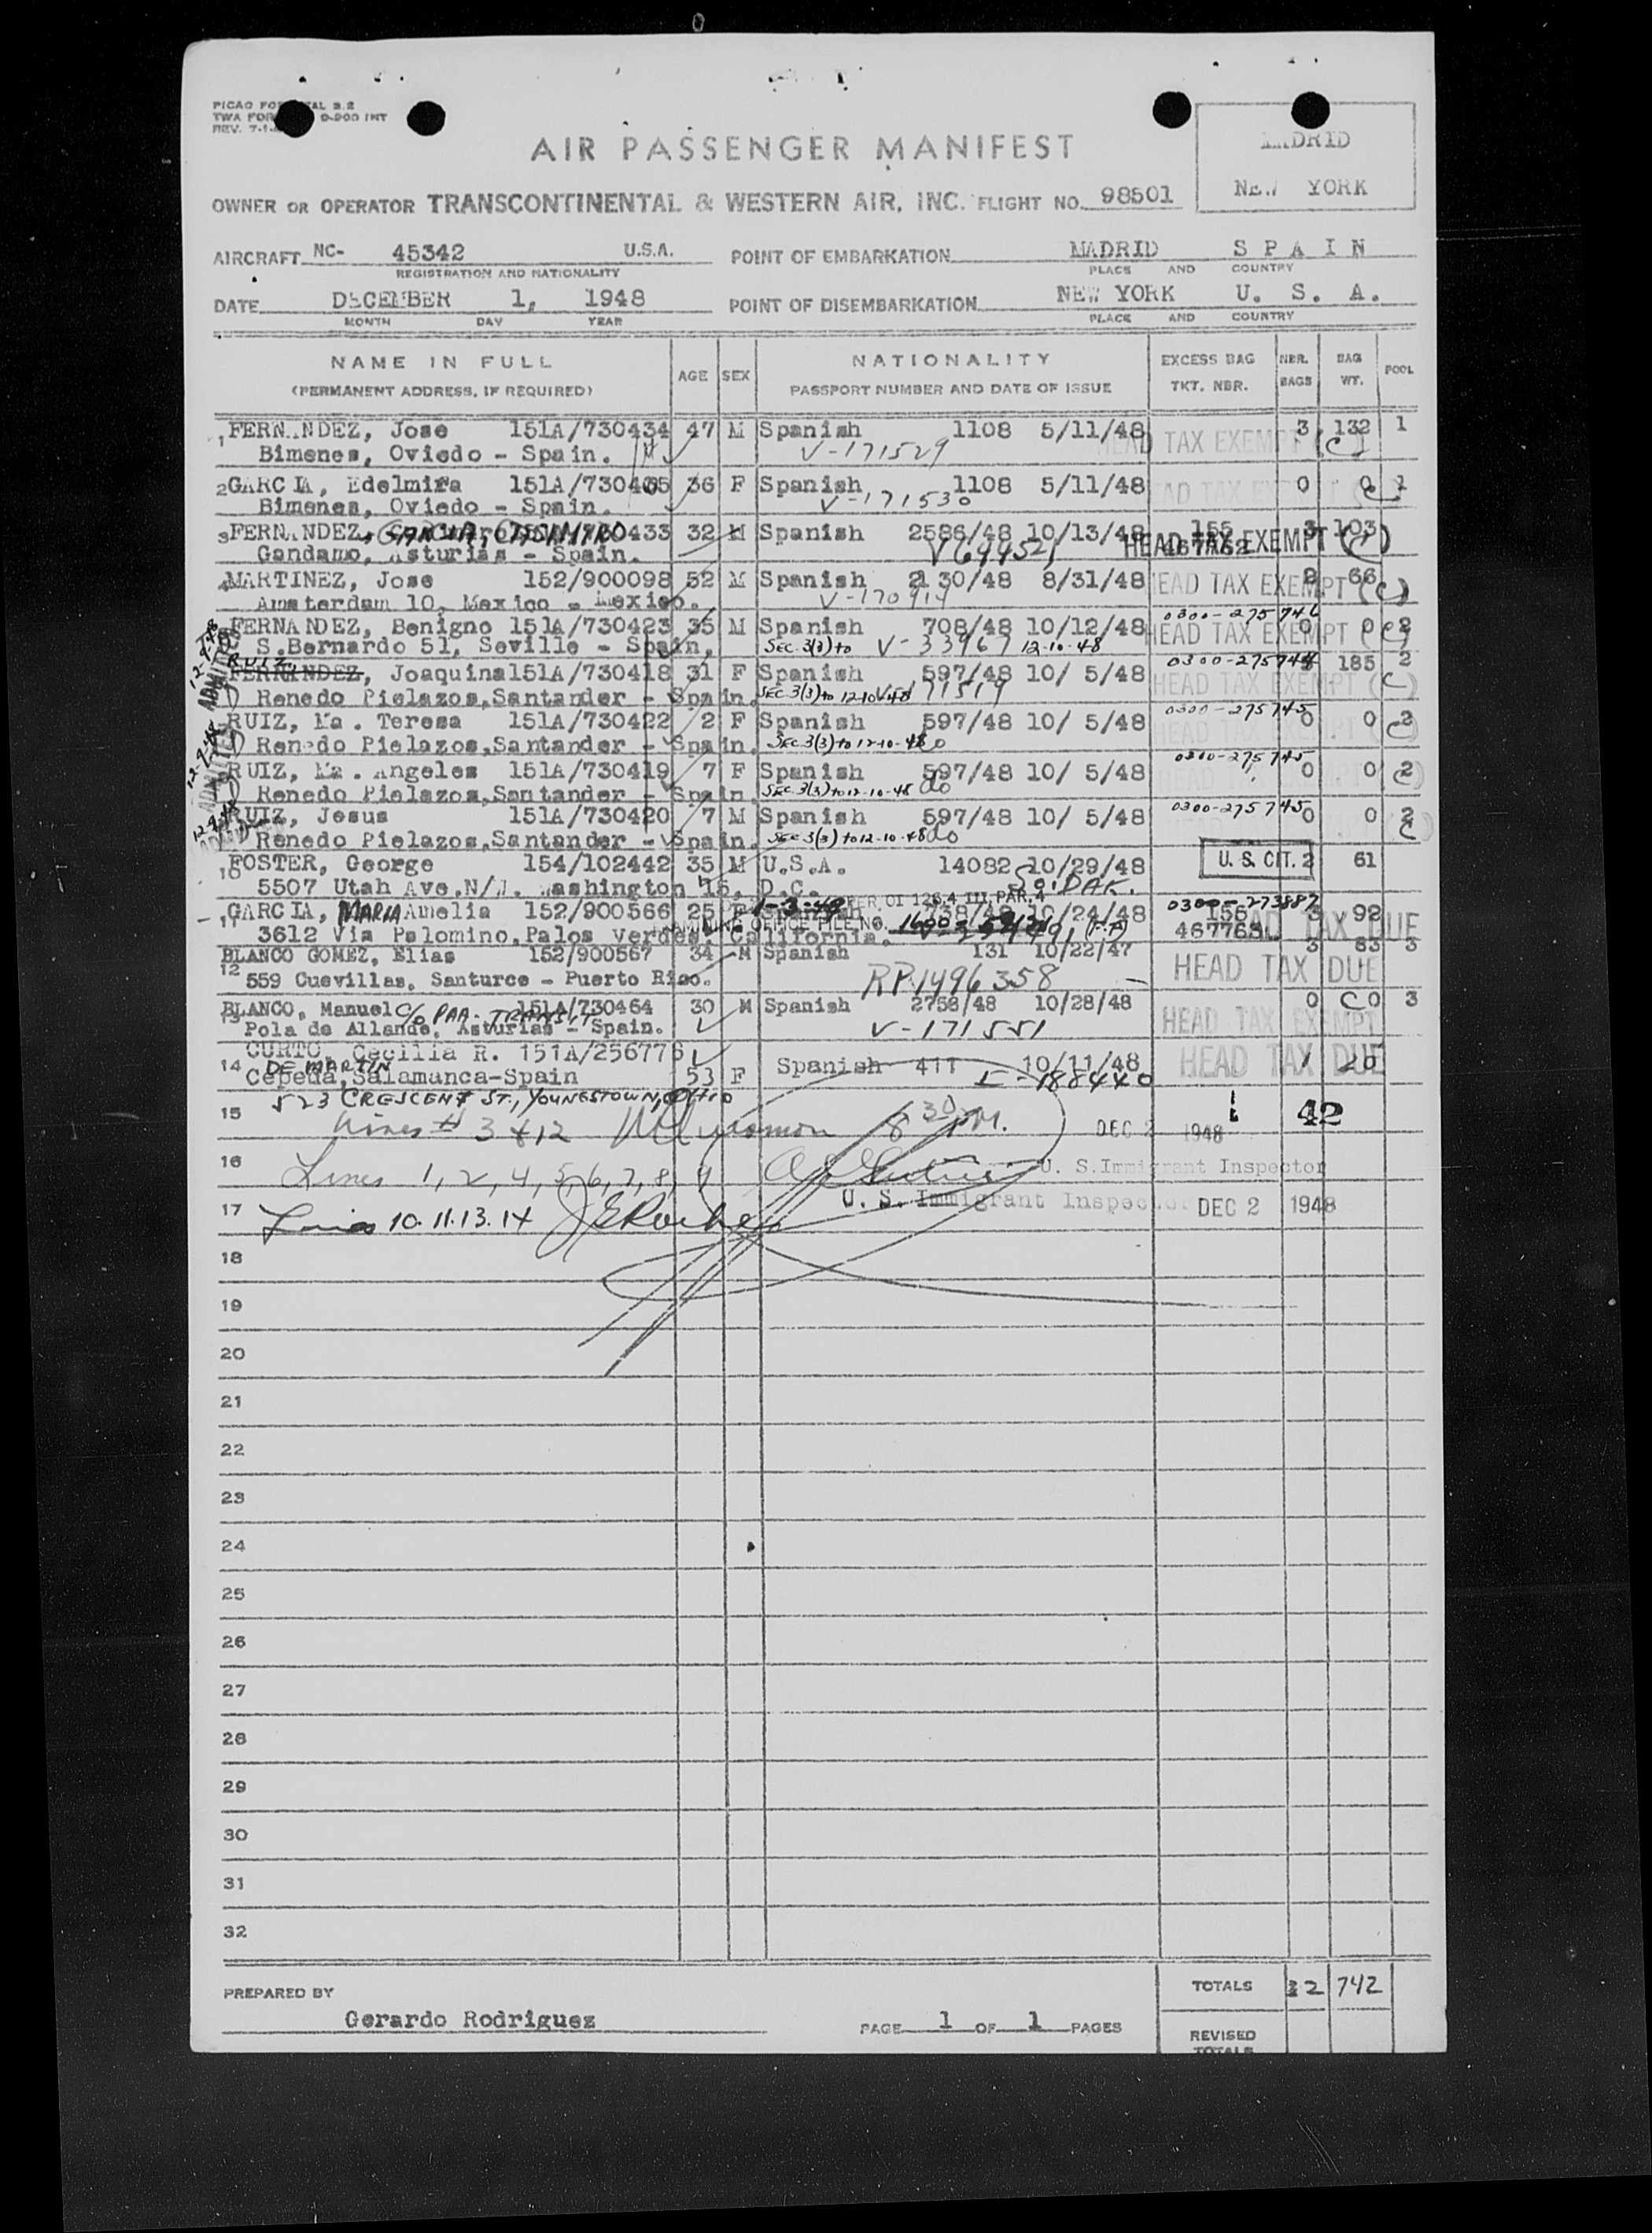 AIR PASSENGER MANIFEST
MADRID
NEW YORK
OWNER OR OPERATOR TRANSCONTINENTAL & WESTERN AIR, INC. FLIGHT NO. 98501
AIRCRAFT NC- 45342 U.S.A. POINT OF EMBARKATION MADRID S P A I N
REGISTRATION AND NATIONALITY PLACE AND COUNTRY
DATE DECEMBER 1, 1948 POINT OF DISEMBARKATION NEW YORK U. S. A.
MONTH DAY YEAR PLACE AND COUNTRY
NAME IN FULL AGE SEX NATIONALITY EXCESS BAG NBR. BAG POOL
(PERMANENT ADDRESS, IF REQUIRED) PASSPORT NUMBER AND DATE OF ISSUE TKT. NBR. BAGS WT.
1 FERN NDEZ, Jose 151A/730434 47 M Spanish 1108 5/11/48 HEAD TAX EXEMPT 3 132 1
Bimenes, Oviedo - Spain. V-171529 (C)
2 GARCIA, Edelmira 36 F Spanish 1108 5/11/48 0 0 1
Bimenes, Oviedo - Spain. V-171530
3 FERN NDEZ, GARCIA, CASIMIRO 32 M Spanish 2586/48 10/13/48 155 3 103
Gandamo, Asturias - Spain. V 694521 HEAD TAX EXEMPT (C)
4 MARTINEZ, Jose 152/900098 52 M Spanish 30/48 8/31/48 HEAD TAX EXEMPT (C) 2 66
Amsterdam 10, Mexico - Mexico. V-170914
FERNANDEZ, Benigno 151A/730423 35 M Spanish 708/48 10/12/48 HEAD TAX EXEMPT (C) 0 0 2
S.Bernardo 51, Seville - Spain, SEC 3(3) to V-33967 12-10-48
RUIZ
FERNANDEZ, Joaquina 151A/730418 31 F Spanish 597/48 10/ 5/48 0300-275744 185 2
Renedo Pielazos, Santander - Spain. SEC 3(3) to 12-10-48 HEAD TAX EXEMPT (C)
RUIZ, Ma. Teresa 151A/730422 2 F Spanish 597/48 10/ 5/48 0300-275745 0 0 2
Renedo Pielazos, Santander - Spain. SEC 3(3) to 12-10-48 do
RUIZ, Ma. Angeles 151A/730419 7 F Spanish 597/48 10/ 5/48 0300-275745 0 0 2
Renedo Pielazos, Santander - Spain. SEC 3(3) to 12-10-48 do
RUIZ, Jesus 151A/730420 7 M Spanish 597/48 10/ 5/48 0300-275745 0 0 2
Renedo Pielazos, Santander - Spain. SEC 3(3) to 12-10-48 do
10 FOSTER, George 154/102442 35 M U.S.A. 14082 10/29/48 U. S. CIT. 2 61
5507 Utah Ave.N/W. Washington 15, D.C. SO. DAK.
11 GARCIA, MARIA Amelia 152/900566 25 F Spanish 738/48 10/24/48 0300-273887 3 92
3612 Via Palomino, Palos Verdes, California. HEAD TAX DUE
BLANCO GOMEZ, Elias 152/900567 34 M Spanish 131 10/22/47 3 83 3
12 559 Cuevillas, Santurce - Puerto Rico. RP 1496358 HEAD TAX DUE
BLANCO, Manuel C/o PAA - TRANSIT 151A/730464 30 M Spanish 2758/48 10/28/48 0 C 0 3
Pola de Allande, Asturias - Spain. V-171551 HEAD TAX EXEMPT
CURTO, Cecilia R. 151A/256776 Spanish 411 10/11/48 HEAD TAX DUE 1 20
14 DE MARTIN
Cepeda, Salamanca-Spain 53 F
523 CRESCENT ST., YOUNGSTOWN, OHIO
15 Lines # 3 & 12 8 30 P.M. DEC 2 1948 42
16 Lines 1, 2, 4, 5, 6, 7, 8, 9 U. S. Immigrant Inspector
17 Lines 10. 11. 13. 14 U. S. Immigrant Inspector DEC 2 1948
18
19
20
21
22
23
24
25
26
27
28
29
30
31
32
PREPARED BY TOTALS 742
Gerardo Rodriguez PAGE 1 OF 1 PAGES
REVISED
TOTALS